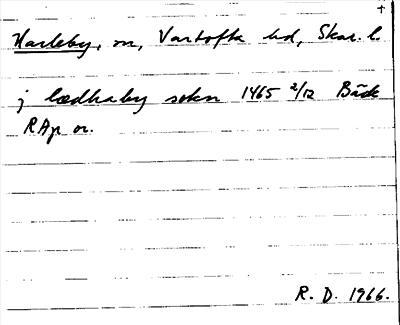 +
Harleby, on, Vartofta hd, Skar. l.
j lædhaby sokn 1465 2/12 Båck
RAp or.
R. D. 1966.